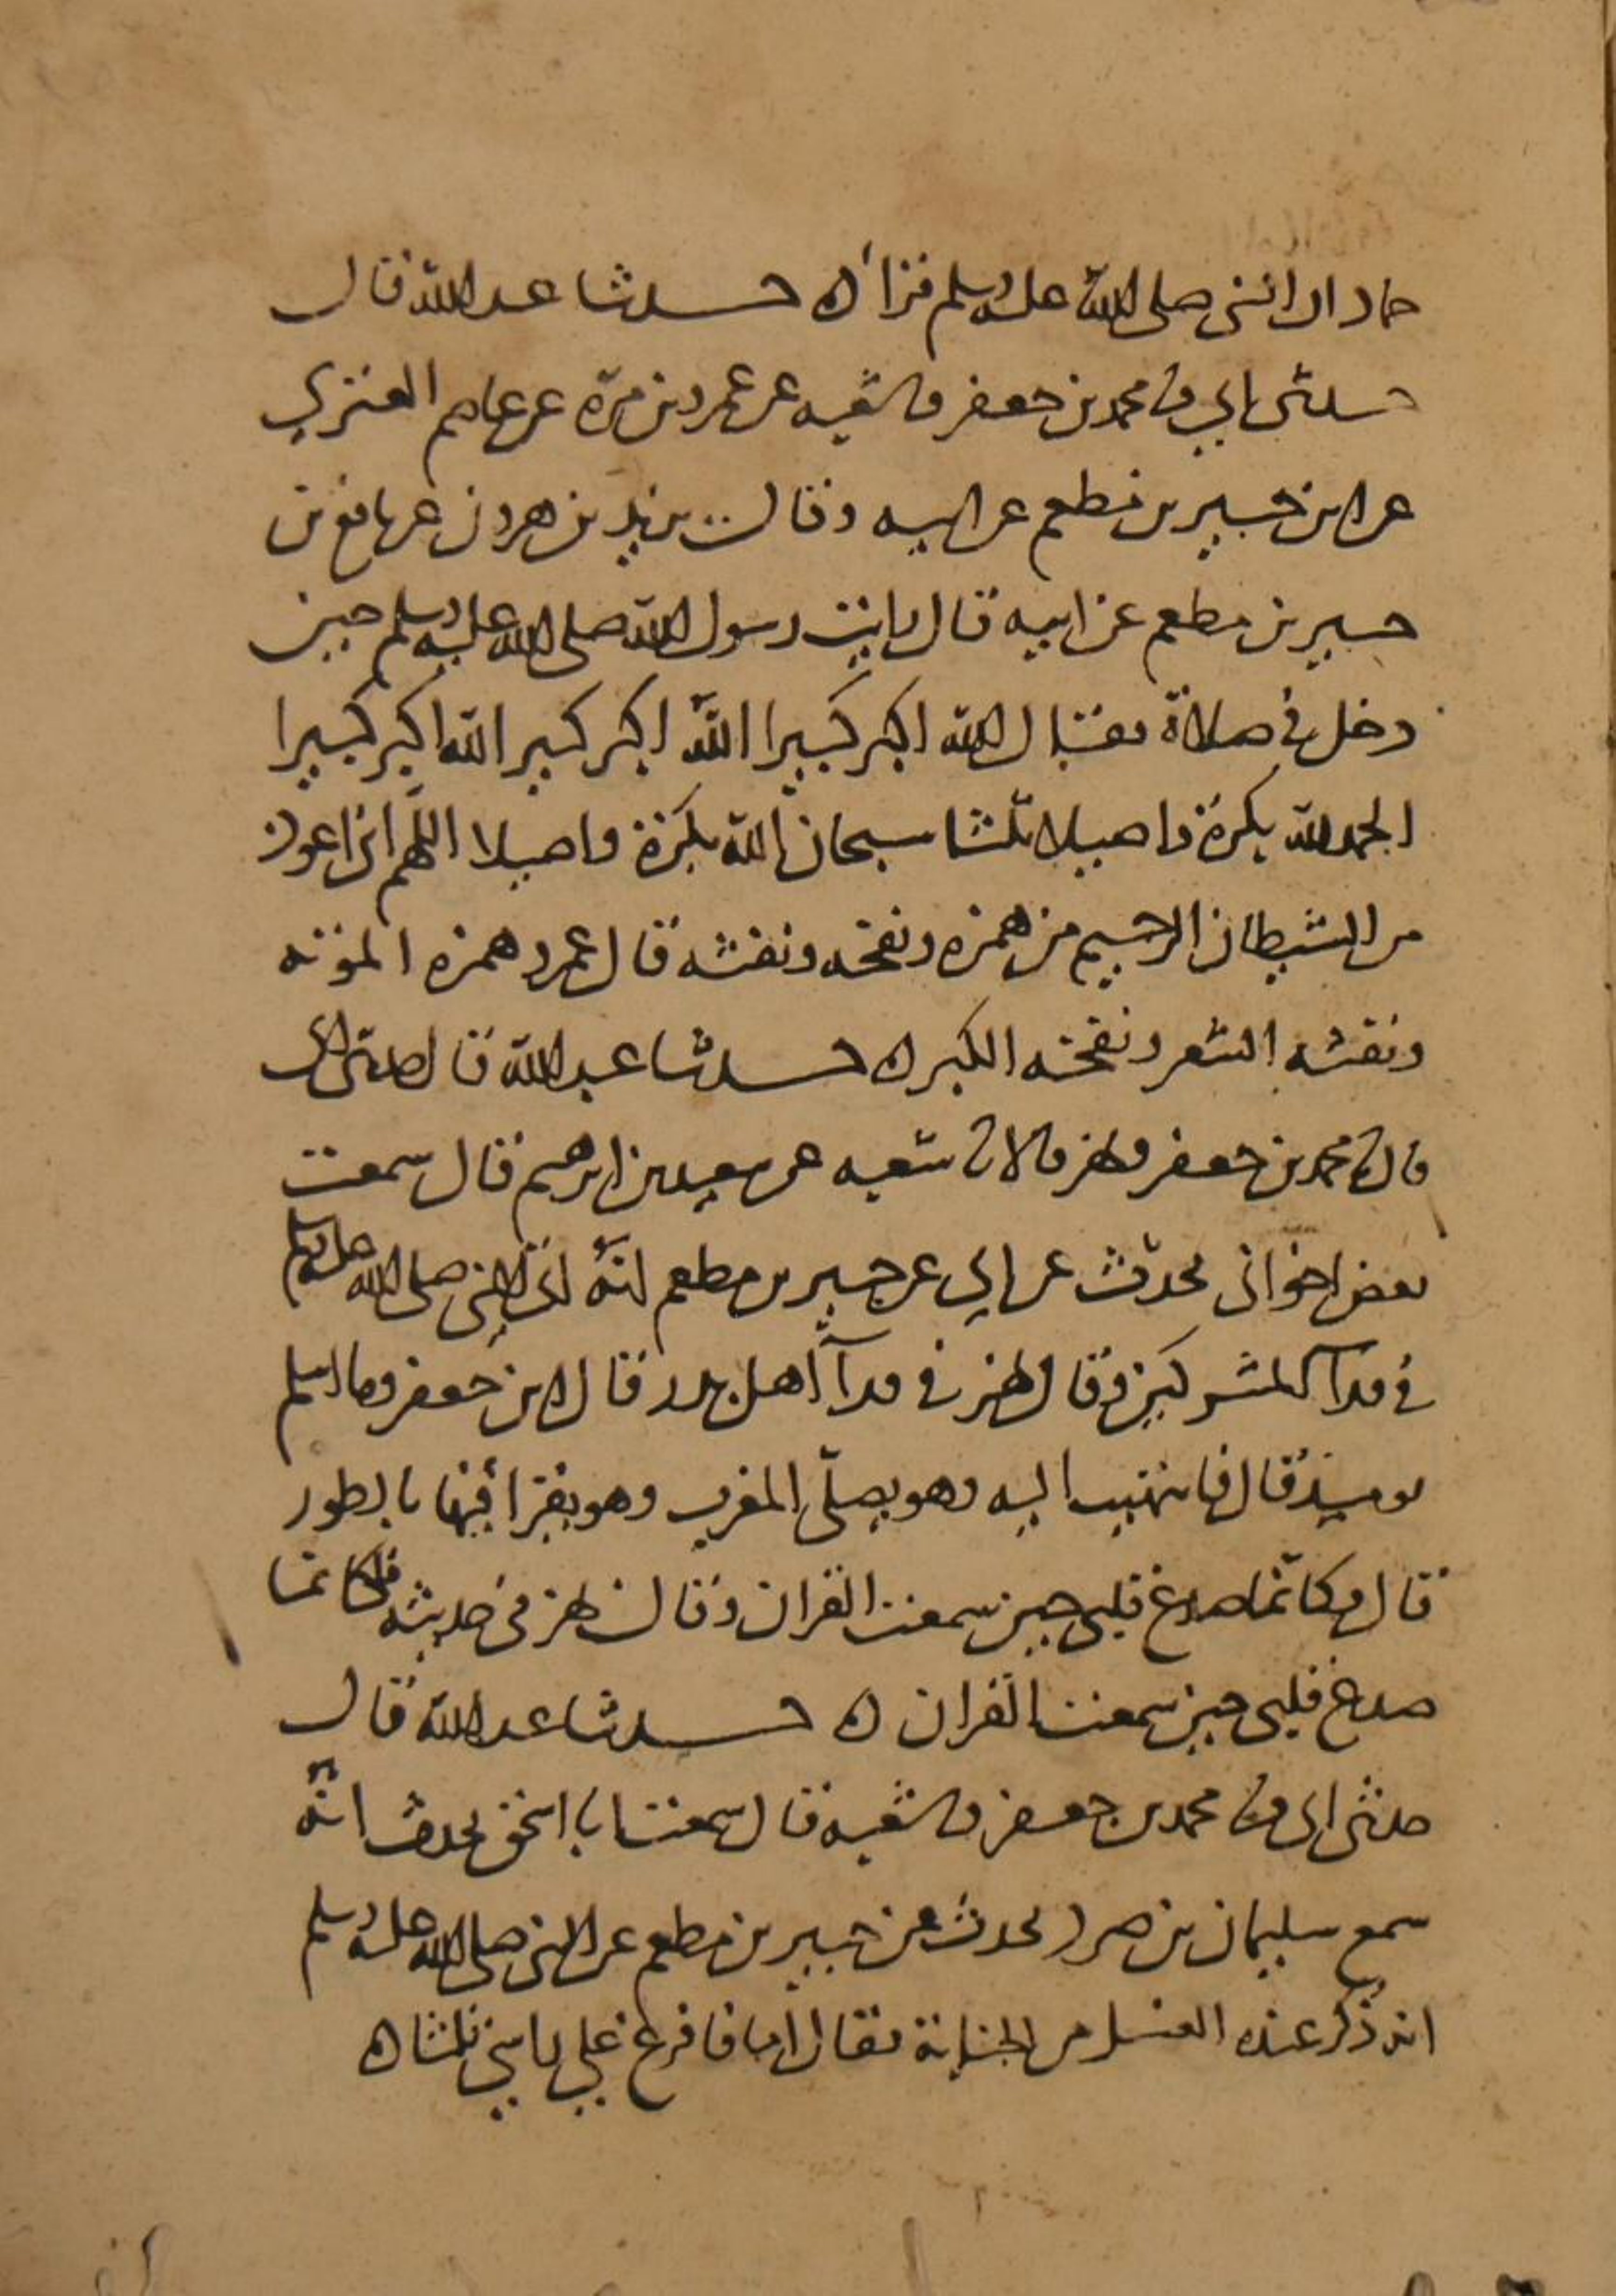 حماد ان النبي صلى الله عليه وسلم قرا ه حدثنا عبد الله قال
حدثني ابي ثنا محمد بن جعفر ثنا شعبه عن عمرو بن مرّه عن عاصم العنزي
عن ابن جبير بن مطعم عن ابيه وقال يزيد بن هرون عن نافع بن
جبير بن مطعم عن ابيه قال رايت رسول الله صلى الله عليه وسلم حين
دخل في صلاة فقال الله اكبر كبيرا الله اكبر كبيرا الله اكبر كبيرا
الحمد لله بكرة واصيلا ثلثا سبحان الله بكرة واصيلا اللهم اني اعوذ
من الشيطان الرجيم من همزه ونفخه ونفثه قال عمرو همزه الموته
ونفثه الشعر ونفخه الكبر ه حدثنا عبد الله قال حدثني ابي
قال ثنا محمد بن جعفر وبهز قالا ثنا شعبه عن سعد بن ابرهيم قال سمعت
بعض اخواني يحدّث عن ابي عن جبير بن مطعم انه اتى النبي صلى الله عليه وسلم
في فدآ المشركين وقال بهز في فدآ أهل بدر قال ابن جعفر وما اسلم
يوميذ قال فانتهيت اليه وهو يصلّي المغرب وهو يقرأ فيها بالطور
قال فكانّما صدع قلبي حين سمعت القران وقال بهز في حديثه فكانما
صدع قلبي حين سمعت القران ه حدثنا عبد الله قال
حدثني ابي ثنا محمد بن جعفر ثنا شعبه قال سمعت ابا اسحق يحدث انّه
سمع سليمان بن صرد يحدث عن جبير بن مطعم عن النبي صلى الله عليه وسلم
انه ذُكر عنده الغسل من الجنابة فقال أما انا فافرغ على راسي ثلثا ه